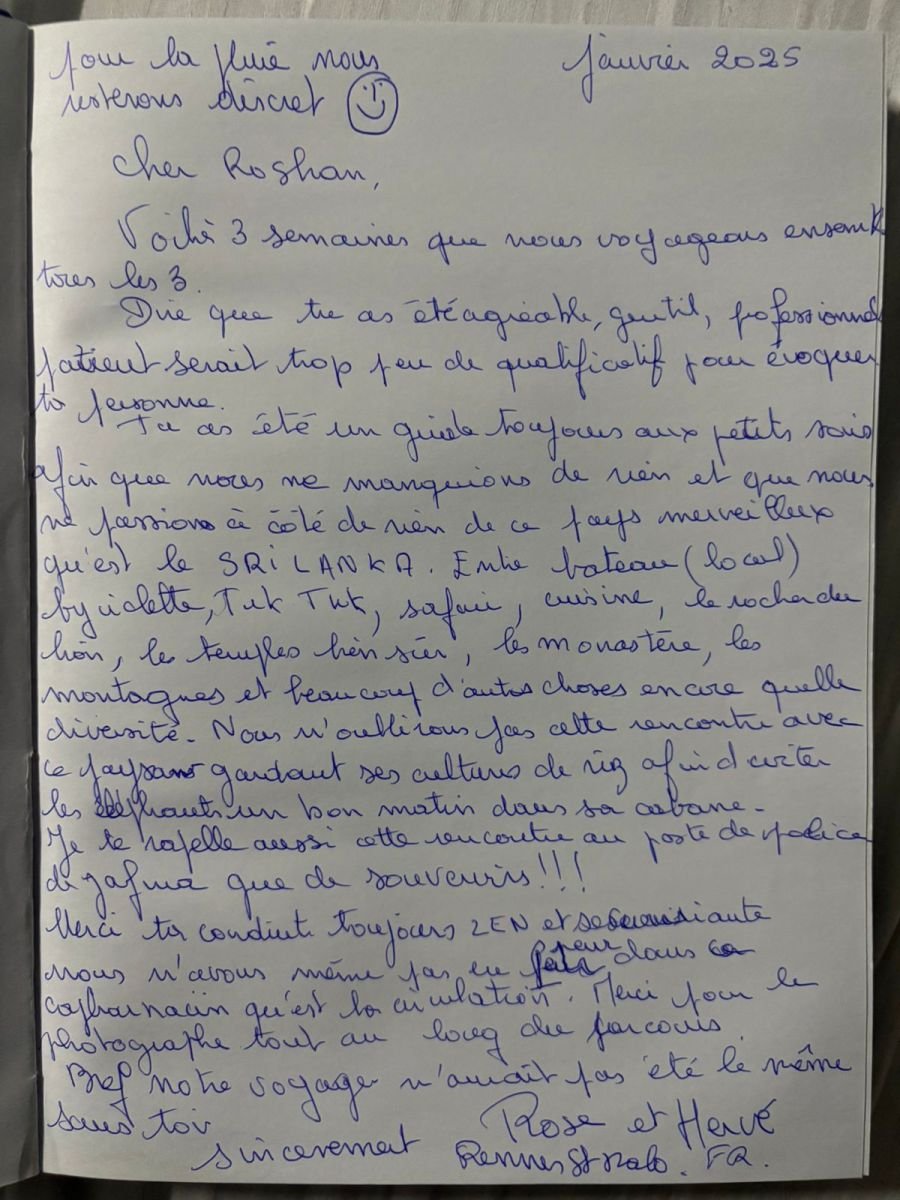 pour la pluie nous
resterons discret
janvier 2025
Cher Roshan,
Voilà 3 semaines que nous voyageons ensemble
tous les 3.
Dire que tu as été agréable, gentil, professionnel
patient serait trop peu de qualificatif pour évoquer
ta personne.
Tu as été un guide toujours aux petits soins
afin que nous ne manquions de rien et que nous
ne passions à côté de rien de ce pays merveilleux
qu'est le SRI LANKA. Entre bateau (local)
byciclette, Tuk Tuk, safari, cuisine, le rocher du
lion, les temples bien sûr, les monastère, les
montagnes et beaucoup d'autres choses encore quelle
diversité. Nous n'oublirons pas cette rencontre avec
ce paysan gardant ses cultures de riz afin d'éviter
les éléphants un bon matin dans sa cabane.
Je te rapelle aussi cette rencontre au poste de police
de Jafna que de souvenirs!!!
Merci ta conduite toujours ZEN et
nous n'avons même pas eu peur dans ce
capharnaün qu'est la circulation. Merci pour le
photographe tout au long du parcours
Bref notre voyage n'aurait pas été le même
sans toi
sincerement
Rose et Hervé
Rennes St Malo. FR.